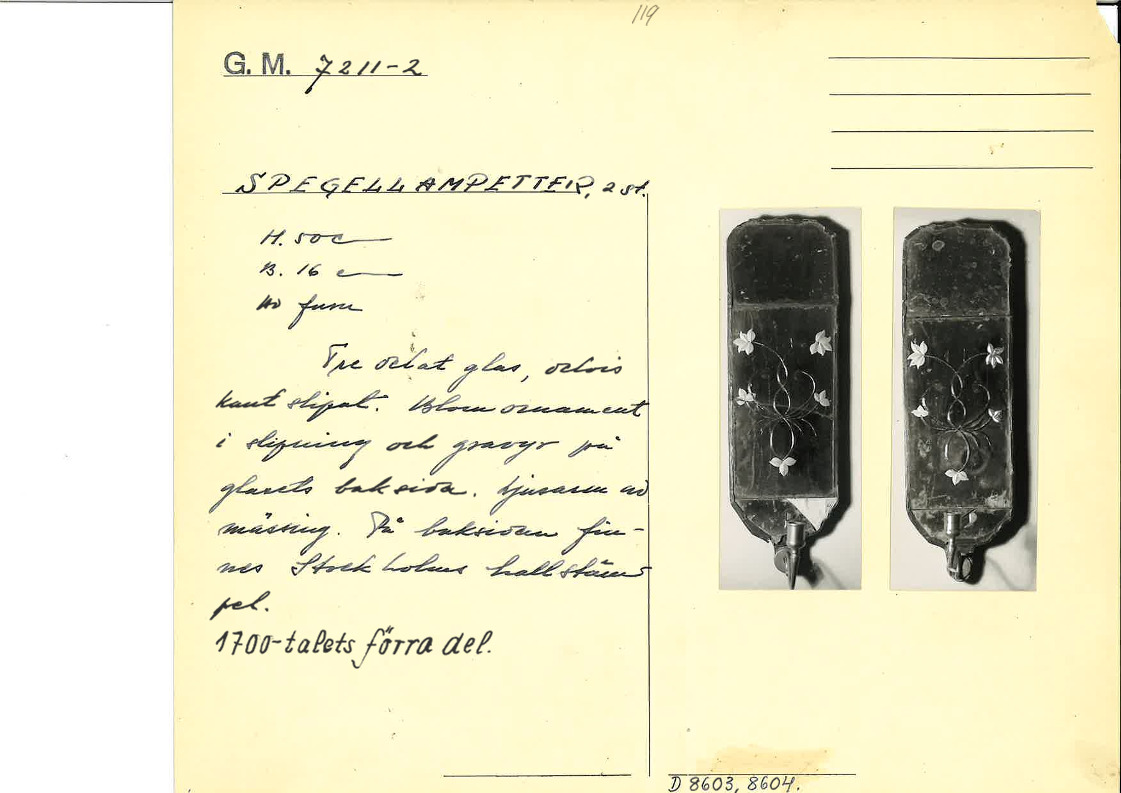 119
G. M. 7211-2
SPEGELLAMPETTER, 2 st.
H. 50 c
B. 16 c
Av furu
Tre delat glas, delvis
kant slipat. Blom ornament
i slipning och gravyr på
glasets baksida. Ljusarm av
mässing. På baksidan fin-
nes Stockholms hallstäm
pel.
1700-talets förra del.
D 8603, 8604.